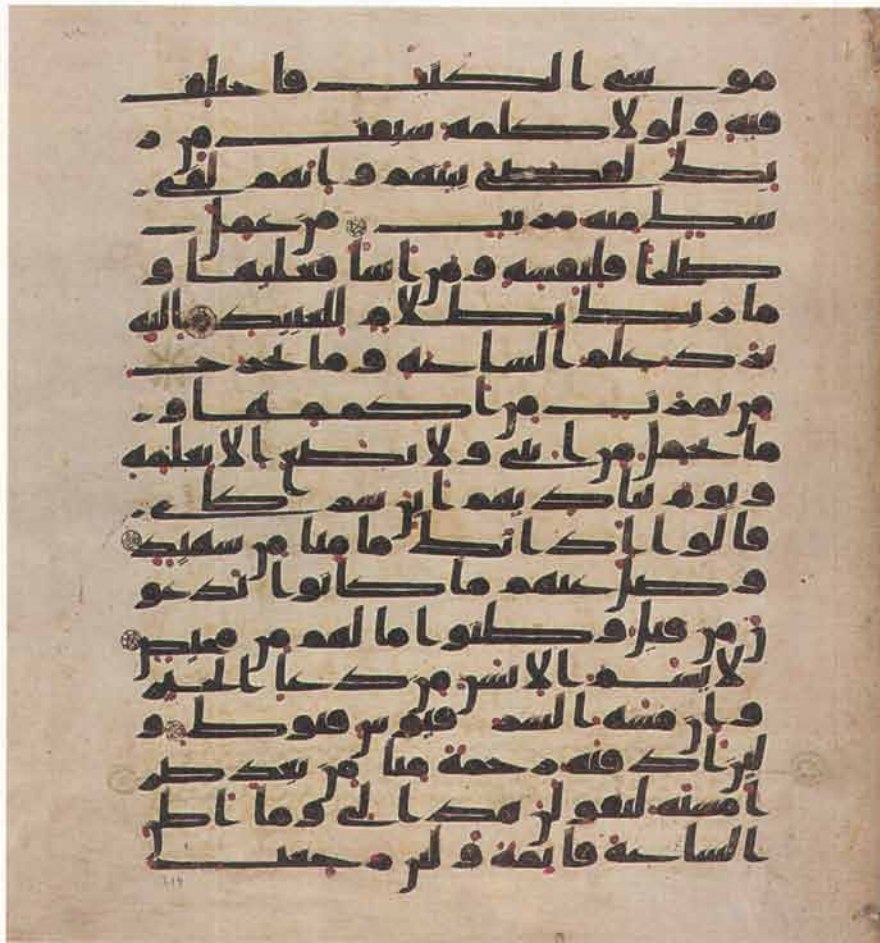 موسى الكتب فاختلف
فيه ولولا كلمة سبقت من ر
بك لقضى بينهم وانهم لفى
شك منه مريب من عمل
صلحا فلنفسه ومن اسا فعليها و
ما ربك بظلام للعبيد اليه
يرد علم الساعة وما تخرج
من ثمرت من اكممها و
ما تحمل من انثى ولا تضع الا بعلمه
ويوم يناديهم اين شركاى
قالوا اذنك ما منا من شهيد
وضل عنهم ما كانوا يدعو
ن من قبل وظنوا ما لهم من محيص
لا يسم الانسن من دعا الخير
وان مسه الشر فيوس قنوط و
لين اذقنه رحمة منا من بعد ضر
ا مسته ليقولن هذا لى وما اظن
الساعة قايمة ولين رجعت